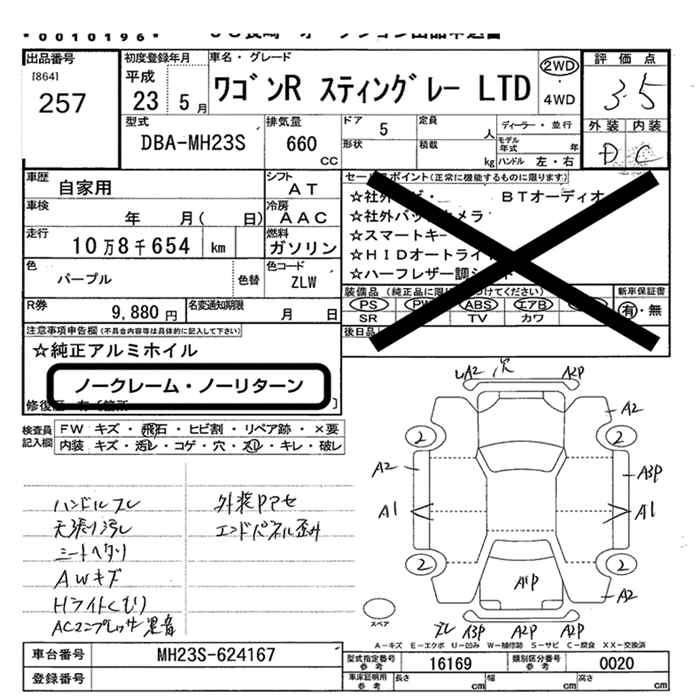 *0010196*
出品番号 [864] 257
初度登録年月 平成 23 5月
車名・グレード ワゴンR スティングレー LTD
2WD 4WD
評価点 3.5
外装 内装
D C
型式 DBA-MH23S
排気量 660 CC
ドア 5
形状
定員 人
積載 kg
ディーラー・並行
モデル年式 年
ハンドル 左・右
車歴 自家用
シフト AT
車検 年 月( 日)
冷房 AAC
走行 10万8千654 km
燃料 ガソリン
色 パープル 色替
色コード ZLW
R券 9,880円
名変通知期限 月 日
セールスポイント(正常に機能するものに限ります)
☆社外 BTオーディオ
☆社外バックカメラ
☆スマートキー
☆HIDオートライト
☆ハーフレザー調シート
装備品(純正品に限り つけてください)
PS PW ABS エアB
SR TV カワ
新車保証書 有・無
後日品
注意事項申告欄(不具合内容等は具体的に記入して下さい)
☆純正アルミホイル
ノークレーム・ノーリターン
修復歴 有[箇所 ]
検査員記入欄
FW キズ・飛石・ヒビ割・リペア跡・×要
内装 キズ・汚レ・コゲ・穴・スレ・キレ・破レ
ハンドルスレ
天張り汚レ
シートヘタリ
AWキズ
Hライトくもり
ACコンプレッサ異音
外装Pアセ
エンドパネル歪み
A2 穴 A2P
A2
2 2
A2 A3P
A1 A1
2 2
A1P
A2
スレ A3P A2P A2P
スペア
A-キズ E-エクボ U-凹み W-補修跡 S-サビ C-腐食 XX-交換済
車台番号 MH23S-624167
登録番号
型式指定番号 参考 16169
類別区分番号 参考 0020
車庫証明用 参考 長さ cm 幅 cm 高さ cm